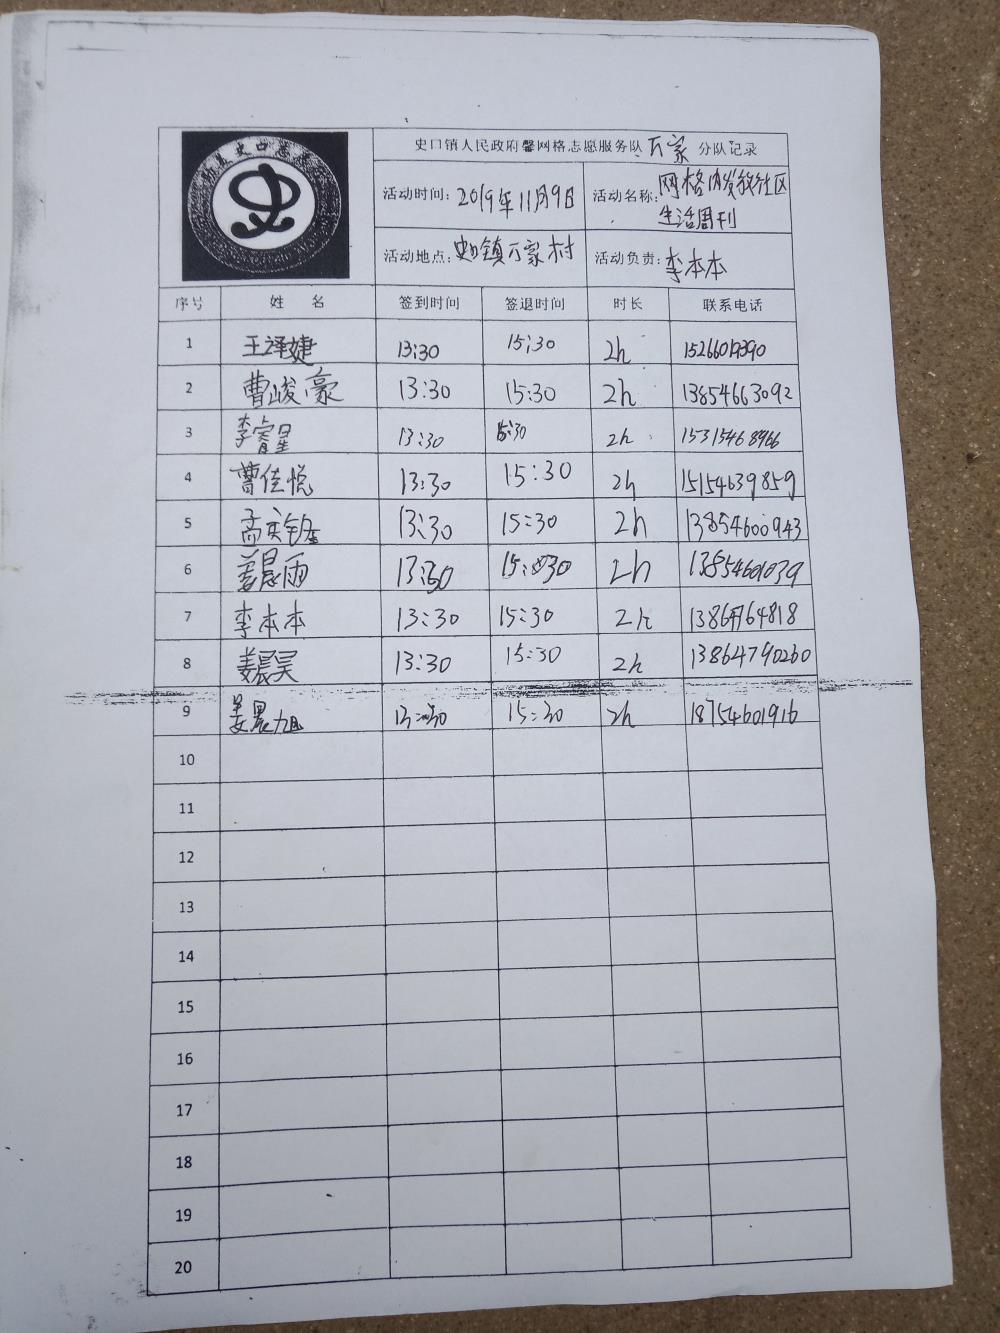 史口镇人民政府馨网格志愿服务队 万家 分队记录
活动时间: 2019年11月9日 活动名称: 网格内发放社区生活周刊
活动地点: 史口镇万家村 活动负责: 李本本
序号 姓 名 签到时间 签退时间 时长 联系电话
1 王译婕 13:30 15:30 2h
2 曹峻豪 13:30 15:30 2h 13854663092
3 李睿星 13:30 15:30 2h 15315468966
4 曹佳悦 13:30 15:30 2h 15154639859
5 孟 13:30 15:30 2h 13854600943
6 姜晨雨 13:30 15:30 2h 13854601039
7 李本本 13:30 15:30 2h 13864764818
8 姜晨昊 13:30 15:30 2h 13864790260
9 姜晨旭 13:30 15:30 2h 18754601916
10
11
12
13
14
15
16
17
18
19
20